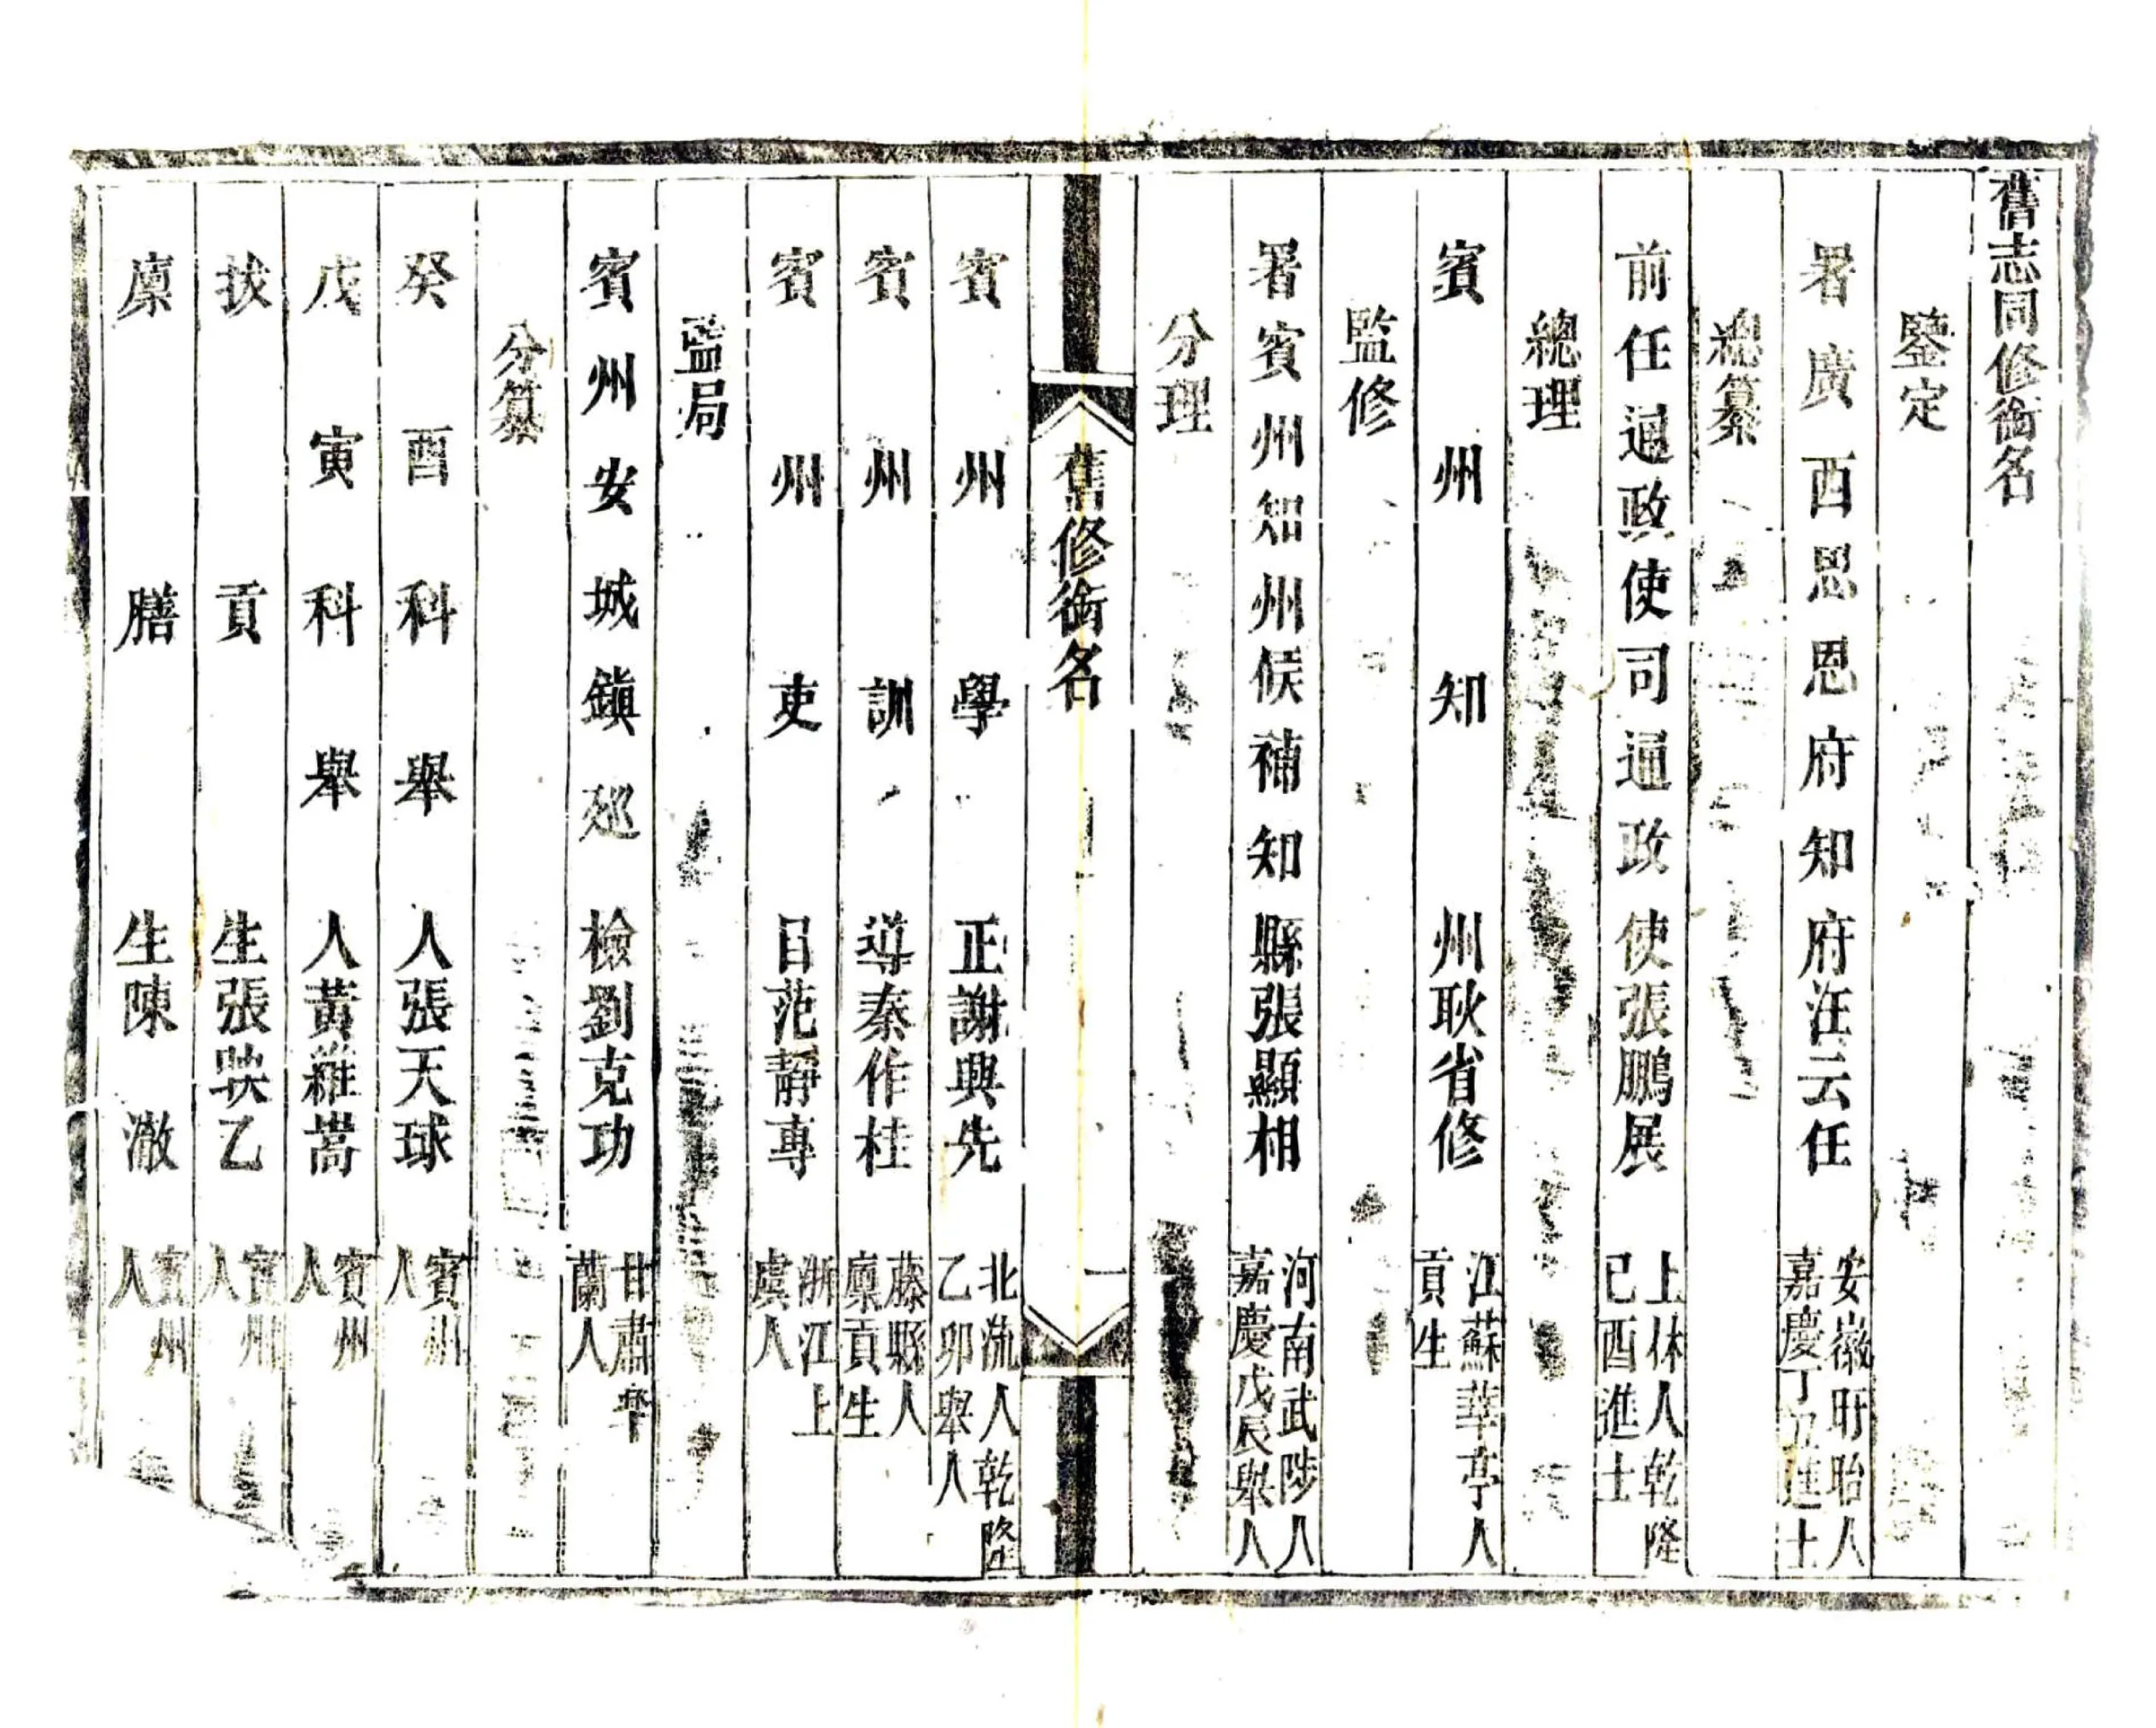 舊志同修銜名
鑒定
署廣西思恩府知府汪云任 安徽盱眙人嘉慶丁丑進士
總纂
前任通政使司通政使張鵬展 上林人乾隆己酉進士
總理
賓州知州耿省修 江蘇華亭人貢生
監修
署賓州知州候補知縣張顯相 河南武陟人嘉慶戊辰舉人
分理
舊修銜名 一
賓州學正謝興先 北流人乾隆乙卯舉人
賓州訓導秦作桂 藤縣人廩貢生
賓州吏目范靜專 浙江上虞人
監局
賓州安城鎮廵檢劉克功 甘肅皋蘭人
分纂
癸酉科舉人張天球 賓州人
戊寅科舉人黃維嵩 賓州人
拔貢生張映乙 賓州人
廩膳生陳澈 賓州人